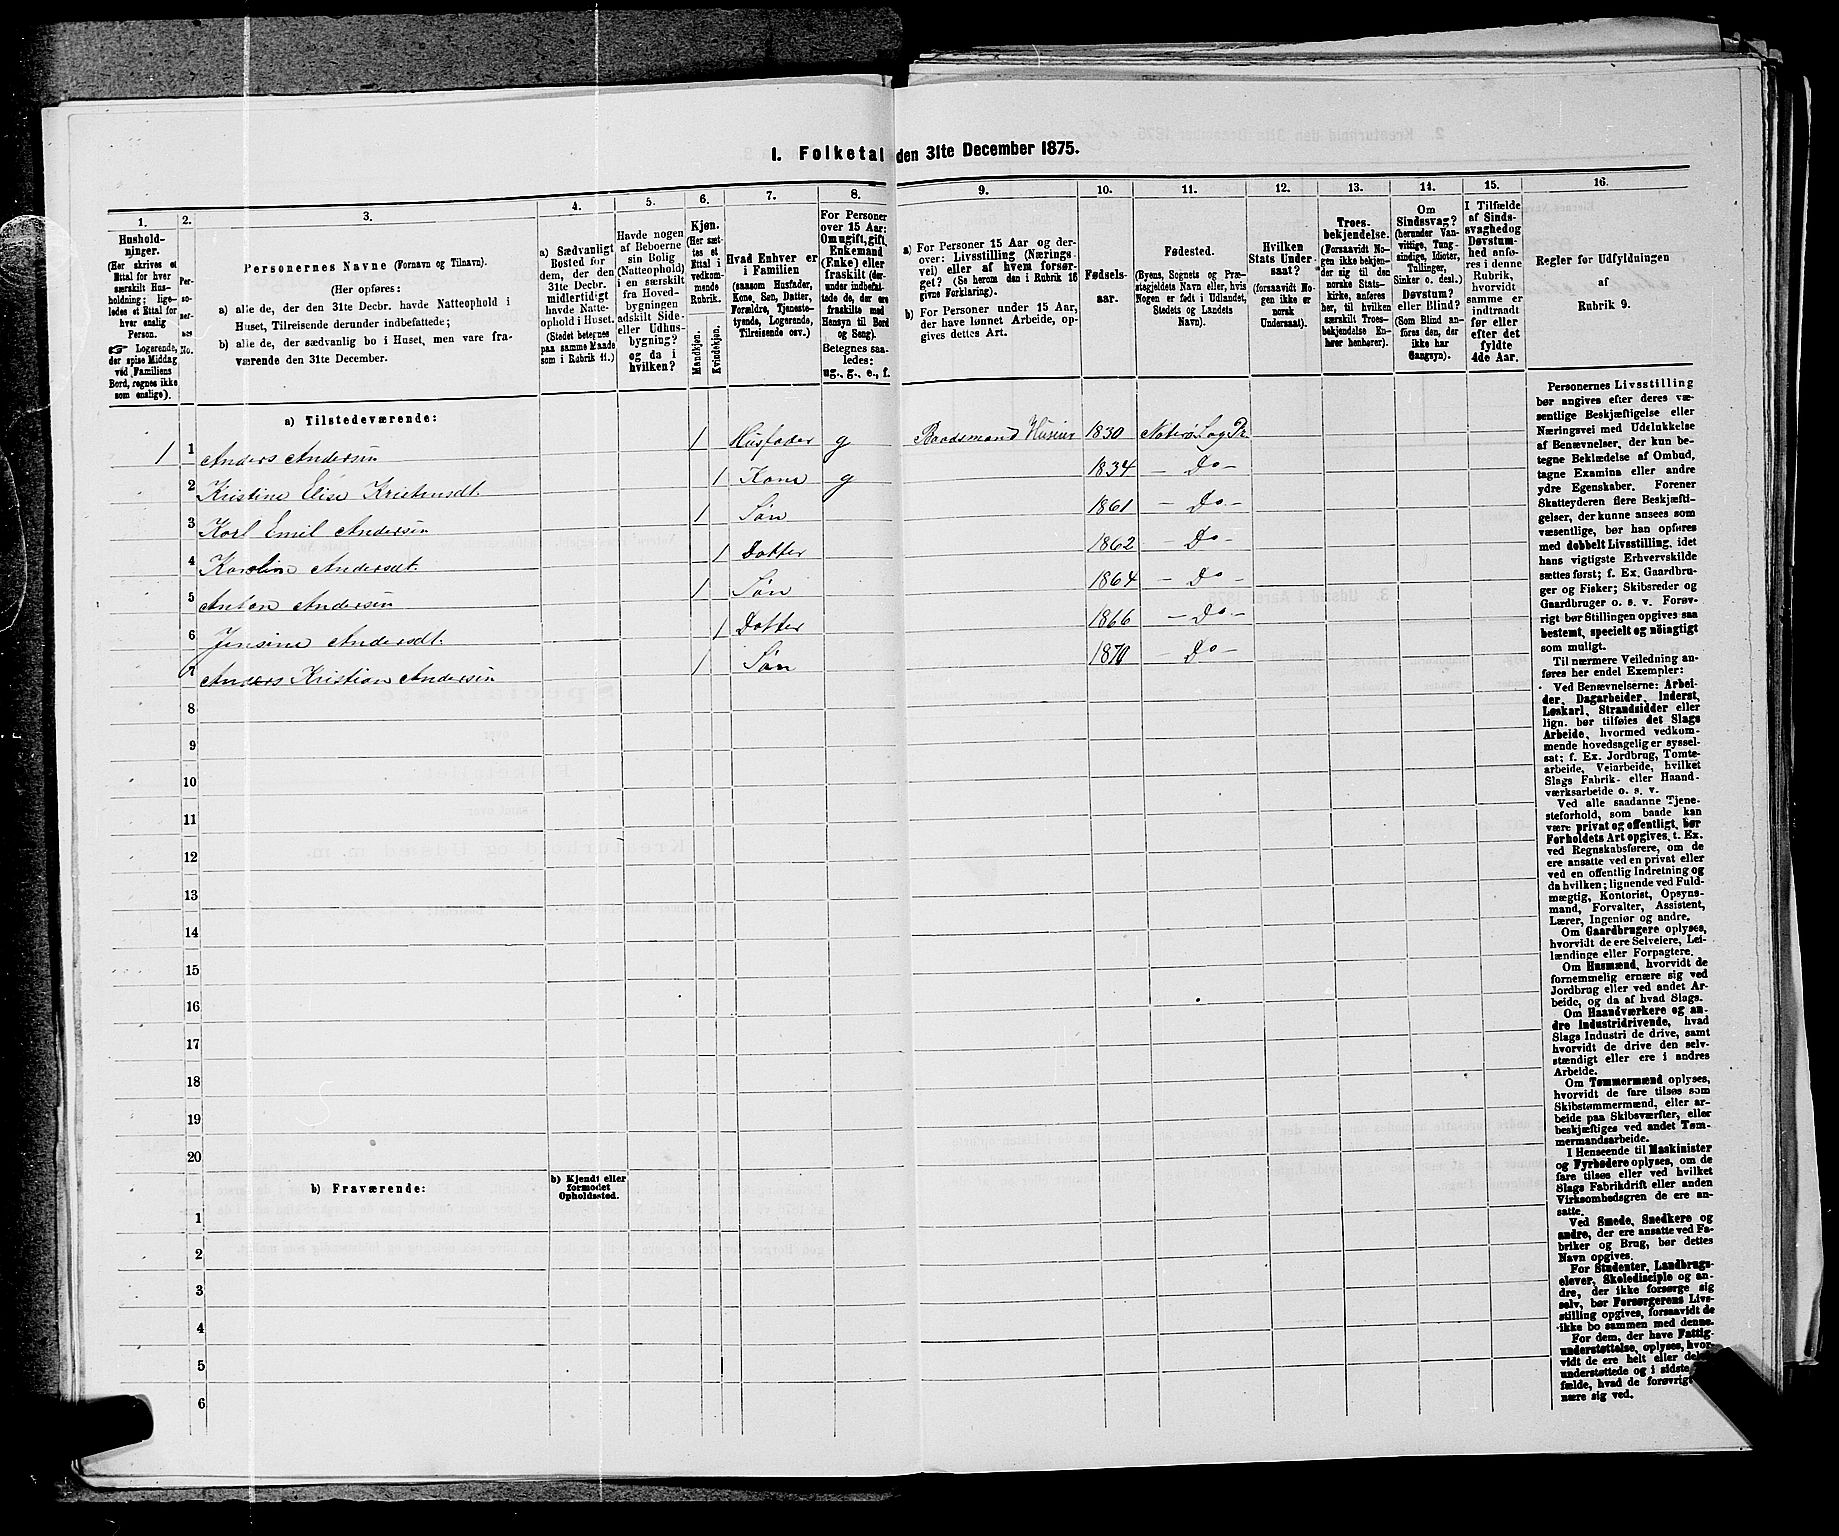 I. Folketal den 31te December 1875.
1. 2. 3. 4. 5. 6. 7. 8. 9. 10. 11. 12. 13. 14. 15. 16.
Hushold-
ninger.
(Her skrives et
Ettal for hver
særskilt Hus-
holdning; lige-
ledes et Ettal for
hver enslig
Person.
☞ Logerende,
der spise Middag
ved Familiens
Bord, regnes ikke
som enslige).
Per-
so-
ner-
nes
No.
Personernes Navne (Fornavn og Tilnavn).
(Her opføres:
a) alle de, der den 31te Decbr. havde Natteophold i
Huset, Tilreisende derunder indbefattede;
b) alle de, der sædvanlig bo i Huset, men vare fra-
værende den 31te December.
a) Sædvanligt
Bosted for
dem, der den
31te Decbr.
midlertidigt
havde Natte-
ophold i Huset.
(Stedet betegnes
paa samme Maade
som i Rubrik 11.)
Havde nogen
af Beboerne
sin Bolig
(Natteophold)
i en særskilt
fra Hoved-
bygningen
adskilt Side-
eller Udhus-
bygning?
og da i
hvilken?
Kjøn.
(Her sæt-
tes et
Ettal i
vedkom-
mende
Rubrik.
Mandkjøn.
Kvindekjøn.
Hvad Enhver er
i Familien
(saasom Husfader,
Kone, Søn, Datter,
Forældre, Tjeneste-
tyende, Logerende,
Tilreisende osv.)
For Personer
over 15 Aar:
Om ugift, gift,
Enkemand
(Enke) eller
fraskilt (der-
under indbefat-
tede de, der ere
fraskilte med
Hensyn til Bord
og Seng).
Betegnes saa-
ledes:
ug., g., e., f.
a) For Personer 15 Aar og der-
over: Livsstilling (Nærings-
vei) eller af hvem forsør-
get? (Se herom den i Rubrik 16
givne Forklaring).
b) For Personer under 15 Aar,
der have lønnet Arbeide, op-
gives dettes Art.
Fødsels-
aar.
Fødested.
(Byens, Sognets og Præ-
stegjeldets Navn eller, hvis
Nogen er født i Udlandet,
Stedets og Landets
Navn).
Hvilken
Stats Under-
saat?
(forsaavidt No-
gen ikke er
norsk
Undersaat).
Troes-
bekjendelse.
(Forsaavidt No-
gen ikke bekjen-
der sig til den
norske Stats-
kirke, anføres
her, til hvilken
særskilt Troes-
bekjendelse En-
hver henhører).
Om
Sindssvag?
(herunder Van-
vittige, Tung-
sindige, Idioter,
Tullinger,
Sinker o. desl.)
Døvstum?
eller Blind?
(Som Blind an-
føres den, der
ikke har
Gangsyn).
I Tilfælde
af Sinds-
svaghed og
Døvstum-
hed anfø-
res i denne
Rubrik,
hvorvidt
samme er
indtraadt
før eller
efter det
fyldte
4de Aar.
Regler for Udfyldningen
af
Rubrik 9.
a) Tilstedeværende:
1 1 Anders Andersen 1 Husfader g Baadsmand Huseier 1830 Nøterø Sog Pr.
2 Kristine Elise Kristensdt. 1 Kone g 1834 – Do –
3 Karl Emil Andersen 1 Søn 1861 – Do –
4 Karolin Andersdt. 1 Dotter 1862 – Do –
5 Anton Andersen 1 Søn 1864 – Do –
6 Jensine Andersdt. 1 Dotter 1866 – Do –
7 Anders Kristian Andersen 1 Søn 1870 – Do –
8
9
10
11
12
13
14
15
16
17
18
19
20
b) Fraværende:
b) Kjendt eller
formodet
Opholdssted.
1
2
3
4
5
6
Personernes Livsstilling
bør angives efter deres væ-
sentlige Beskjæftigelse eller
Næringsvei med Udelukkelse
af Benævnelser, der kun be-
tegne Beklædelse af Ombud,
tagne Examina eller andre
ydre Egenskaber. Forener
Skatteyderen flere Beskjæfti-
gelser, der kunne ansees som
væsentlige, bør han opføres
med dobbelt Livsstilling, idet
hans vigtigste Erhvervskilde
sættes først; f. Ex. Gaardbru-
ger og Fisker; Skibsreder og
Gaardbruger o. s. v. Forøv-
rigt bør Stillingen opgives saa
bestemt, specielt og nöiagtigt
som muligt.
Til nærmere Veiledning an-
føres her endel Exempler:
Ved Benævnelserne: Arbei-
der, Dagarbeider, Inderst,
Løskarl, Strandsidder eller
lign. bør tilføies det Slags
Arbeide, hvormed vedkom-
mende hovedsagelig er syssel-
sat; f. Ex. Jordbrug, Tomte-
arbeide, Veiarbeide, hvilket
Slags Fabrik- eller Haand-
værksarbeide o. s. v.
Ved alle saadanne Tjene-
steforhold, som baade kan
være privat og offentligt, bør
Forholdets Art opgives, t. Ex.
ved Regnskabsførere, om de
ere ansatte ved en privat eller
ved en offentlig Indretning og
da hvilken; lignende ved Fuld-
mægtig, Kontorist, Opsyns-
mand, Forvalter, Assistent,
Lærer, Ingeniør og andre.
Om Gaardbrugere oplyses,
hvorvidt de ere Selveiere, Lei-
lændinge eller Forpagtere.
Om Husmænd, hvorvidt de
fornemmelig ernære sig ved
Jordbrug eller ved andet Ar-
beide, og da af hvad Slags.
Om Haandværkere og an-
dre Industridrivende, hvad
Slags Industri de drive, samt
hvorvidt de drive den selv-
stændigt eller ere i andres
Arbeide.
Om Tømmermænd oplyses,
hvorvidt de fare tilsøs som
Skibstømmermænd, eller ar-
beide paa Skibsværfter, eller
beskjæftiges ved andet Tøm-
mermandsarbeide.
I Henseende til Maskinister
og Fyrbødere oplyses, om de
fare tilsøs eller ved hvilket
Slags Fabrikdrift eller anden
Virksombedsgren de ere an-
satte.
Ved Smede, Snedkere og
andre, der ere ansatte ved Fa-
briker og Brug, bør dettes
Navn opgives.
For Studenter, Landbrugs-
elever, Skoledisciple og an-
dre, der ikke forsørge sig
selv, bør Forsørgerens Livs-
stilling opgives, forsaavidt de
ikke bo sammen med denne.
For dem, der have Fattig-
understøttelse, oplyses, hvor-
vidt de ere helt eller
understøttede og i sidste
fælde, hvad de forøvrigt
nære sig ved.